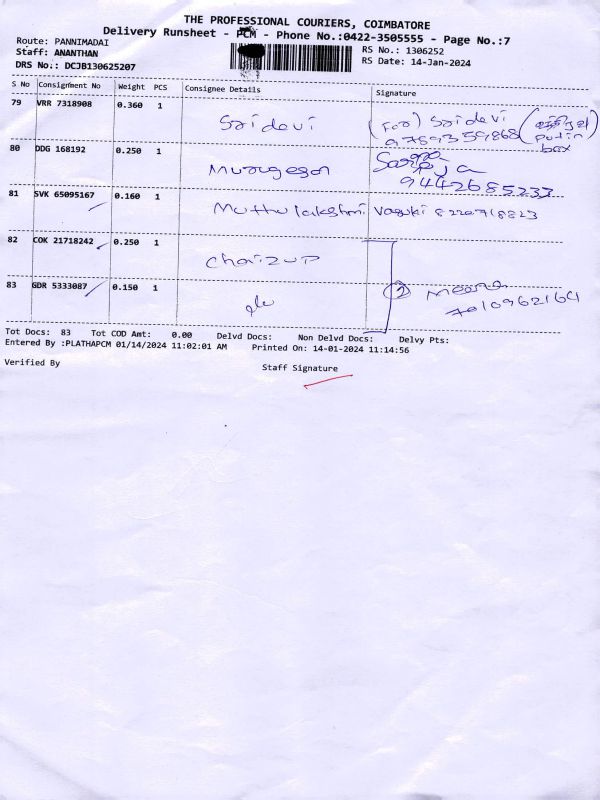 THE PROFESSIONAL COURIERS, COIMBATORE
Delivery Runsheet - PCM - Phone No.:0422-3505555 - Page No.:7
Route: PANNIMADAI
RS No.: 1306252
Staff: ANANTHAN
RS Date: 14-Jan-2024
DRS No.: DCJB130625207
S No Consignment No Weight PCS Consignee Details Signature
79 VRR 7318908 0.360 1 Sridevi (For) Sridevi
9789359868 Put in box
80 DDG 168192 0.250 1 Murugesan
9442685233
81 SVK 65095167 0.160 1 Muthulakshmi Vasuki 8220718823
82 COK 21718242 0.250 1
83 GDR 5333087 0.150 1 2 Meena
7010962164
Tot Docs: 83 Tot COD Amt: 0.00 Delvd Docs: Non Delvd Docs: Delvy Pts:
Entered By :PLATHAPCM 01/14/2024 11:02:01 AM Printed On: 14-01-2024 11:14:56
Verified By
Staff Signature